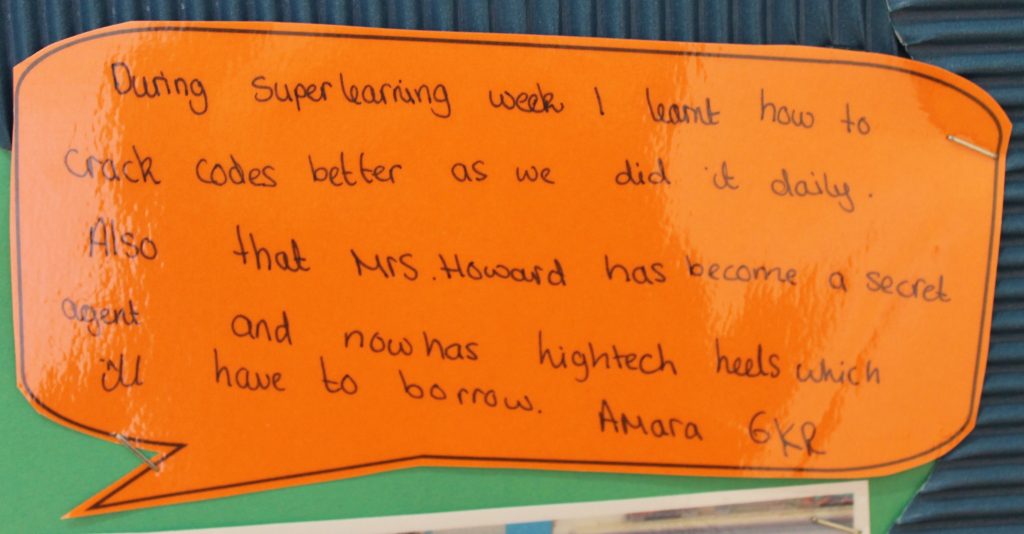 During Superlearning week I learnt how to
crack codes better as we did it daily.
Also that Mrs. Howard has become a secret
agent and now has hightech heels which
i'll have to borrow. Amara 6KR